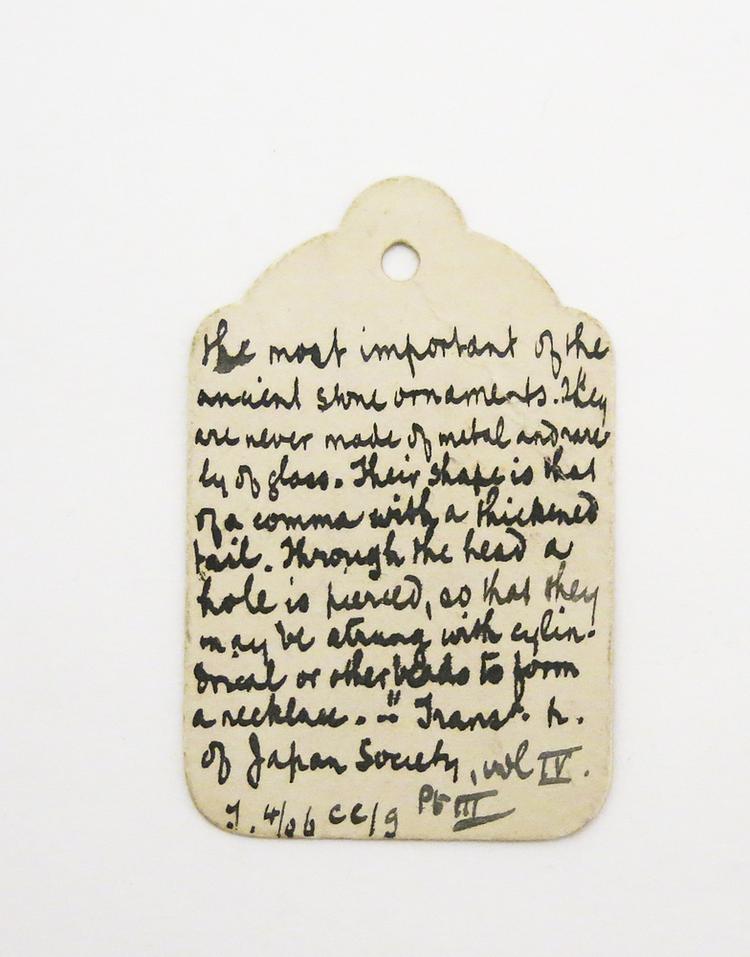 the most important of the
ancient stone ornaments. "They
are never made of metal and rare
ly of glass. Their shape is that
of a comma with a thickened
tail. Through the head a
hole is pierced, so that they
may be strung with cylin-
drical or other beads to form
a necklace." Trans.
of Japan Society, vol IV.
Pt III
4/06 CC/9